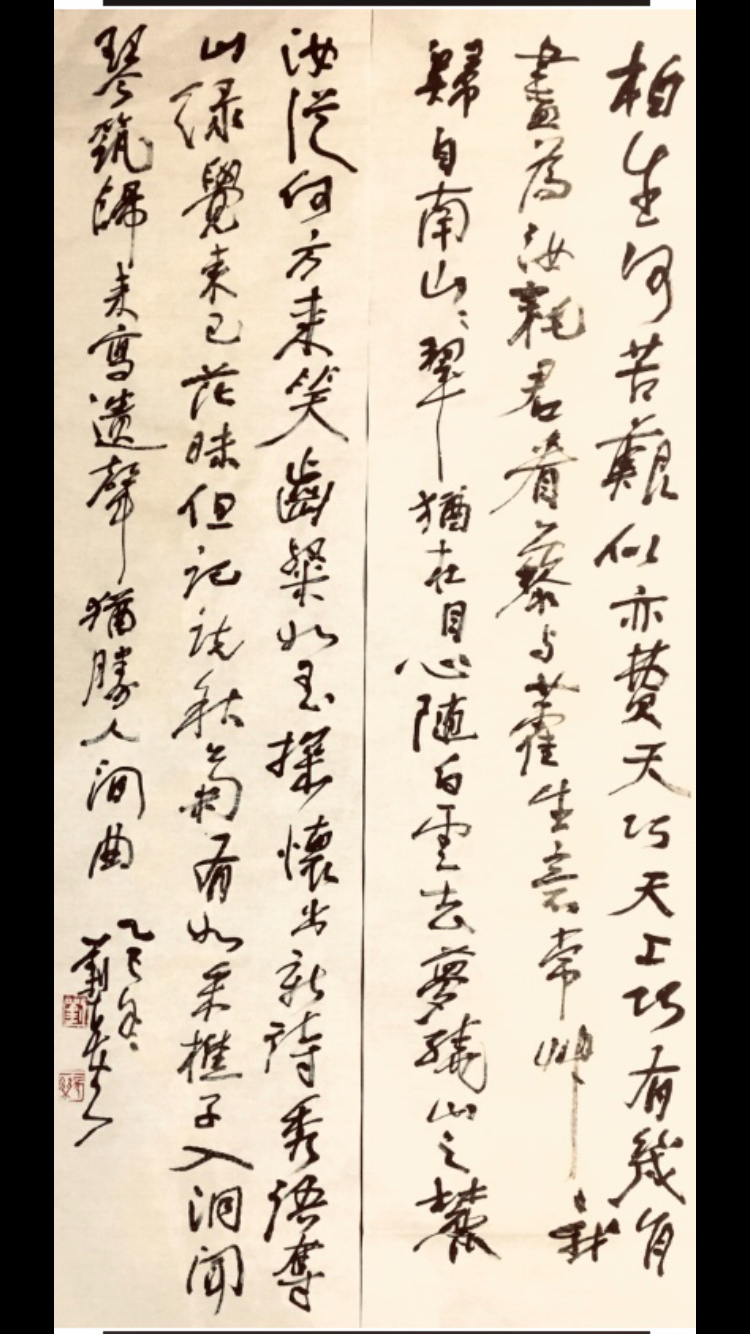 柏生何苦艱似亦費天巧天工巧有幾肯
盡為汝耗君看藜与藿生意常艸〻我
歸自南山〻翠猶在目心隨白雲去夢繞山之麓
汝從何方來笑齒粲如玉探懷出新詩秀語奪
山綠覺來已茫昧但記說秋菊有如采樵子入洞聞
琴筑歸來寫遺聲猶勝人間曲
乙巳冬